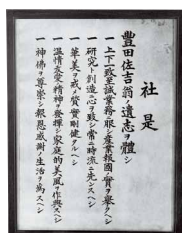 社是
豊田佐吉翁ノ遺志ヲ體シ
一 上下一致至誠業務ニ服シ産業報國ノ實ヲ擧グベシ
一 研究ト創造ニ心ヲ致シ常ニ時流ニ先ンズベシ
一 華美ヲ戒メ質實剛健タルベシ
一 温情友愛精神ヲ發揮シ家庭的美風ヲ作興スベシ
一 神佛ヲ尊崇シ報恩感謝ノ生活ヲ爲スベシ